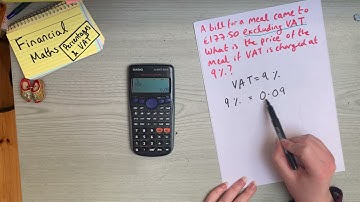 Financial
Maths
Percentages
& VAT
A bill for a meal came to
£177.50 excluding VAT.
What is the price of the
meal if VAT is charged at
9%?
VAT = 9%
9% = 0.09